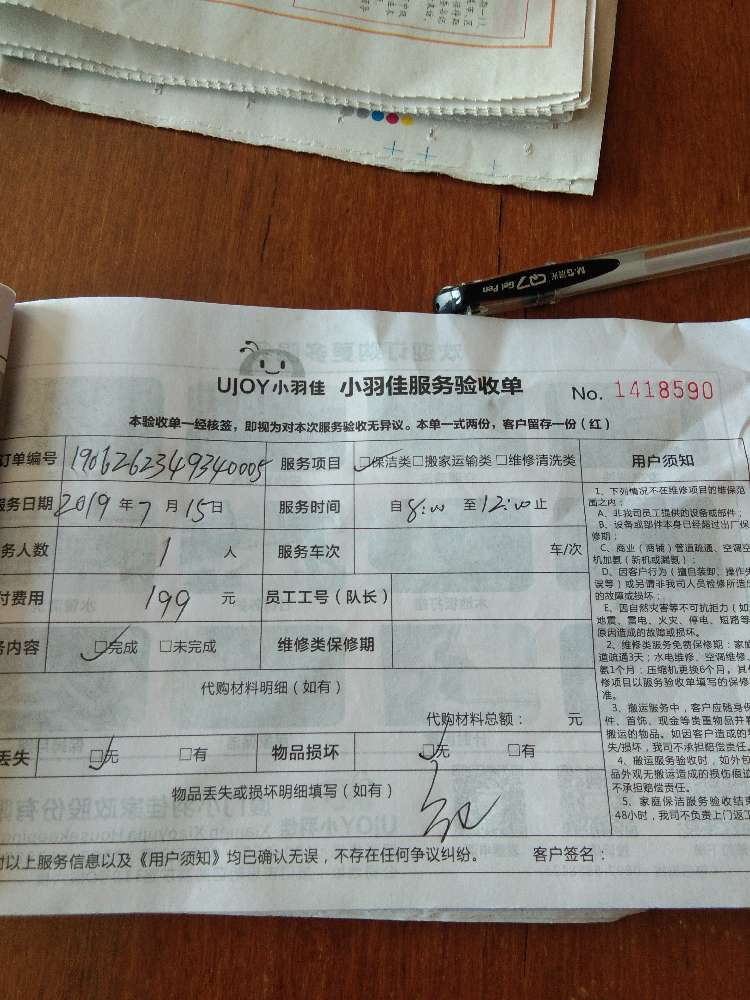 M&G 晨光 Q7 Gel Pen
UJOY小羽佳 小羽佳服务验收单 No. 1418590
本验收单一经核签，即视为对本次服务验收无异议。本单一式两份，客户留存一份（红）
订单编号 1906262349340005 服务项目 □保洁类□搬家运输类□维修清洗类 用户须知
服务日期 2019 年 7 月 15 日 服务时间 自 8:00 至 12:00 止
务人数 1 人 服务车次 车/次
付费用 199 元 员工工号（队长）
务内容 □完成 □未完成 维修类保修期
代购材料明细（如有）
代购材料总额： 元
丢失 □无 □有 物品损坏 □无 □有
物品丢失或损坏明细填写（如有）
对以上服务信息以及《用户须知》均已确认无误，不存在任何争议纠纷。 客户签名：
1、下列情况不在维修项目的维保范
围之内：
A、非我司员工提供的设备或部件；
B、设备或部件本身已经超过出厂保
修期；
C、商业（商铺）管道疏通、空调空
机加氨（新机或漏氨）；
D、因客户行为（擅自装卸、操作失
误等）或另请非我司人员检修所造成
的故障或损坏；
E、因自然灾害等不可抗拒力（如
地震、雷电、火灾、停电、短路等
原因造成的故障或损坏。
2、维修类服务免费保修期：家庭
道疏通3天；水电维修、空调维修、
氨1个月；压缩机更换6个月，其他
修项目以服务验收单填写的保修
准。
3、搬运服务中，客户应随身保
件、首饰、现金等贵重物品并看
搬运的物品。如因客户造成的
失/损坏，我司不承担赔偿责任。
4、搬运服务验收时，如外包
品外观无搬运造成的损伤痕迹
不承担赔偿责任。
5、家庭保洁服务验收结束
48小时，我司不负责上门返工